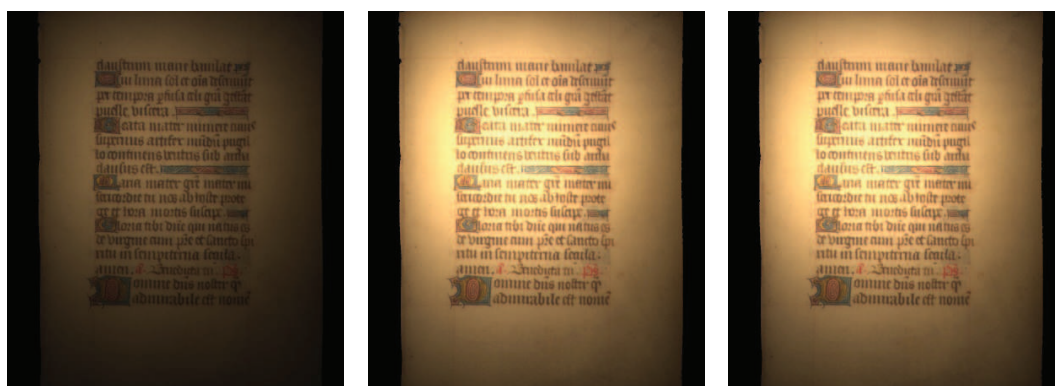 claustrum marie baiulat
Cui luna sol et oīa deserviūt
per tempora pfusa celi grā gestāt
puelle viscera.
Beata mater munere cuius
supernus artifex mūdū pugil
lo continens ventris sub archa
clausus est.
Maria mater grē mater mi
sericordie tu nos ab hoste prote
ge et hora mortis suscipe.
Gloria tibi dñe qui natus es
de virgine cum pr̄e et sancto spi
ritu in sempiterna secula.
amen. a. Benedicta tu. ps.
Domine dñs noster q̄
admirabile est nomē
claustrum marie baiulat
Cui luna sol et oīa deserviūt
per tempora pfusa celi grā gestāt
puelle viscera.
Beata mater munere cuius
supernus artifex mūdū pugil
lo continens ventris sub archa
clausus est.
Maria mater grē mater mi
sericordie tu nos ab hoste prote
ge et hora mortis suscipe.
Gloria tibi dñe qui natus es
de virgine cum pr̄e et sancto spi
ritu in sempiterna secula.
amen. a. Benedicta tu. ps.
Domine dñs noster q̄
admirabile est nomē
claustrum marie baiulat
Cui luna sol et oīa deserviūt
per tempora pfusa celi grā gestāt
puelle viscera.
Beata mater munere cuius
supernus artifex mūdū pugil
lo continens ventris sub archa
clausus est.
Maria mater grē mater mi
sericordie tu nos ab hoste prote
ge et hora mortis suscipe.
Gloria tibi dñe qui natus es
de virgine cum pr̄e et sancto spi
ritu in sempiterna secula.
amen. a. Benedicta tu. ps.
Domine dñs noster q̄
admirabile est nomē